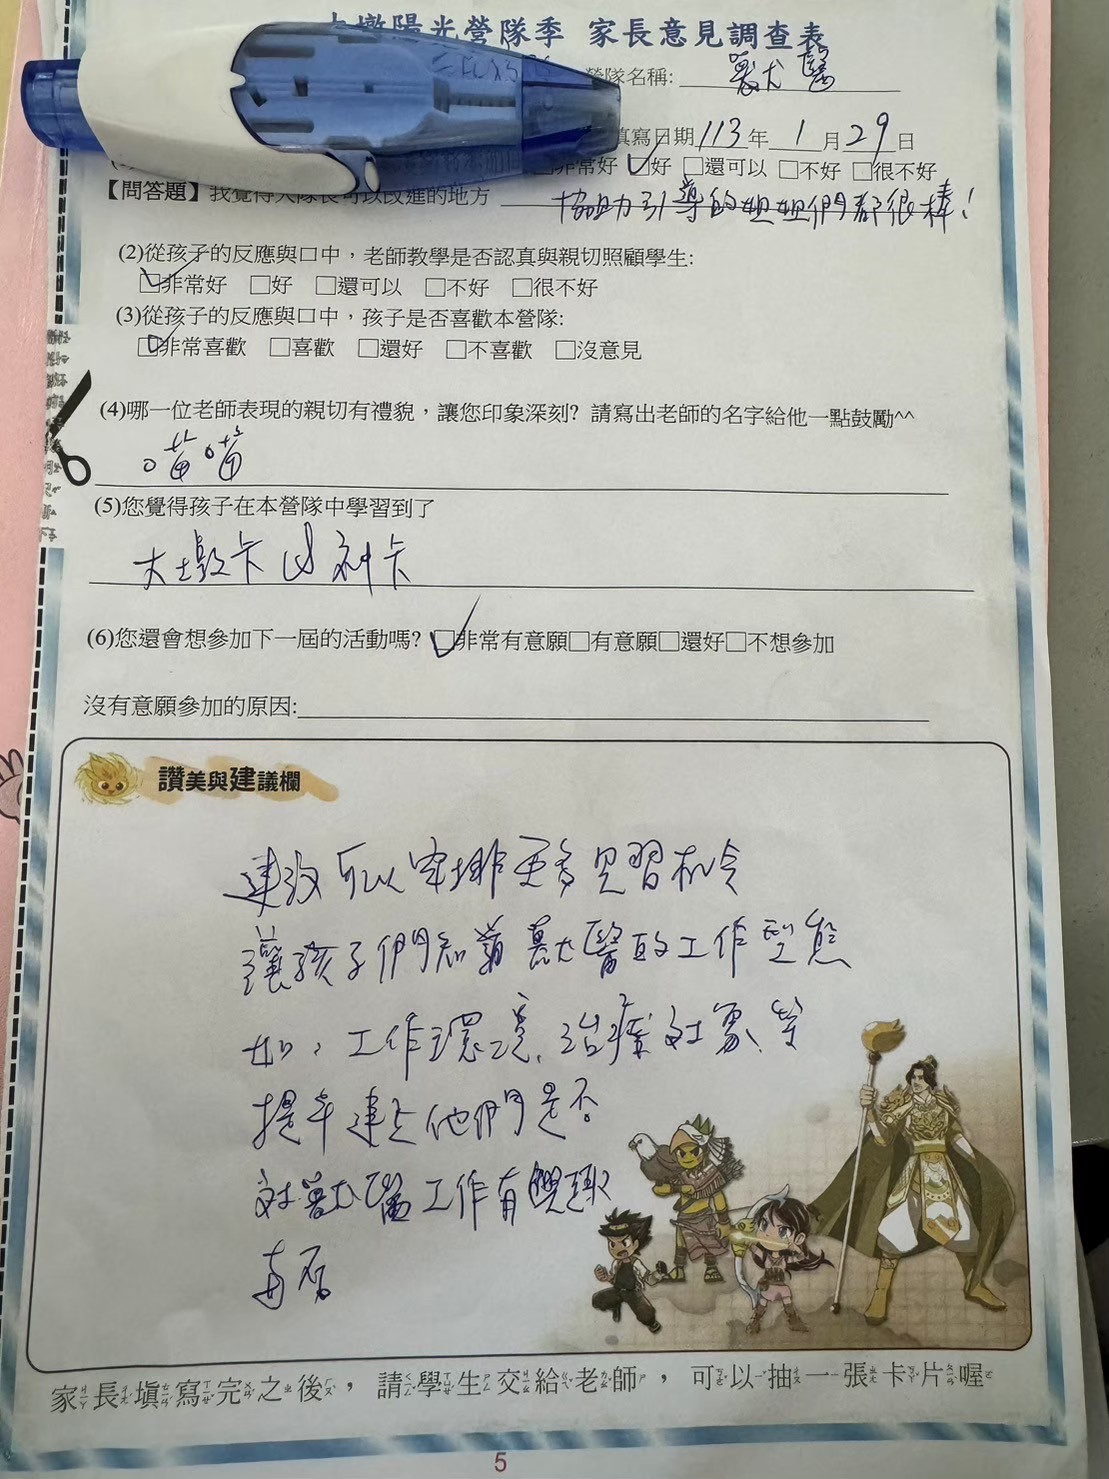 墩陽光營隊季 家長意見調查表
營隊名稱: 獸醫
填寫日期 113 年 1 月 29 日
非常好 □好 □還可以 □不好 □很不好
【問答題】我覺得大隊長可以改進的地方 協助引導的姐姐們都很棒!
(2)從孩子的反應與口中,老師教學是否認真與親切照顧學生:
□非常好 □好 □還可以 □不好 □很不好
(3)從孩子的反應與口中,孩子是否喜歡本營隊:
□非常喜歡 □喜歡 □還好 □不喜歡 □沒意見
(4)哪一位老師表現的親切有禮貌,讓您印象深刻? 請寫出老師的名字給他一點鼓勵^^
喵喵
(5)您覺得孩子在本營隊中學習到了
大墩卡 山神卡
(6)您還會想參加下一屆的活動嗎? □非常有意願□有意願□還好□不想參加
沒有意願參加的原因:
讚美與建議欄
建議可以安排更多見習機會
讓孩子們知道獸醫的工作型態
如:工作環境、治療對象、等
提早建立他們是否
對獸醫工作有興趣
與否
家長填寫完之後,請學生交給老師,可以抽一張卡片喔
5